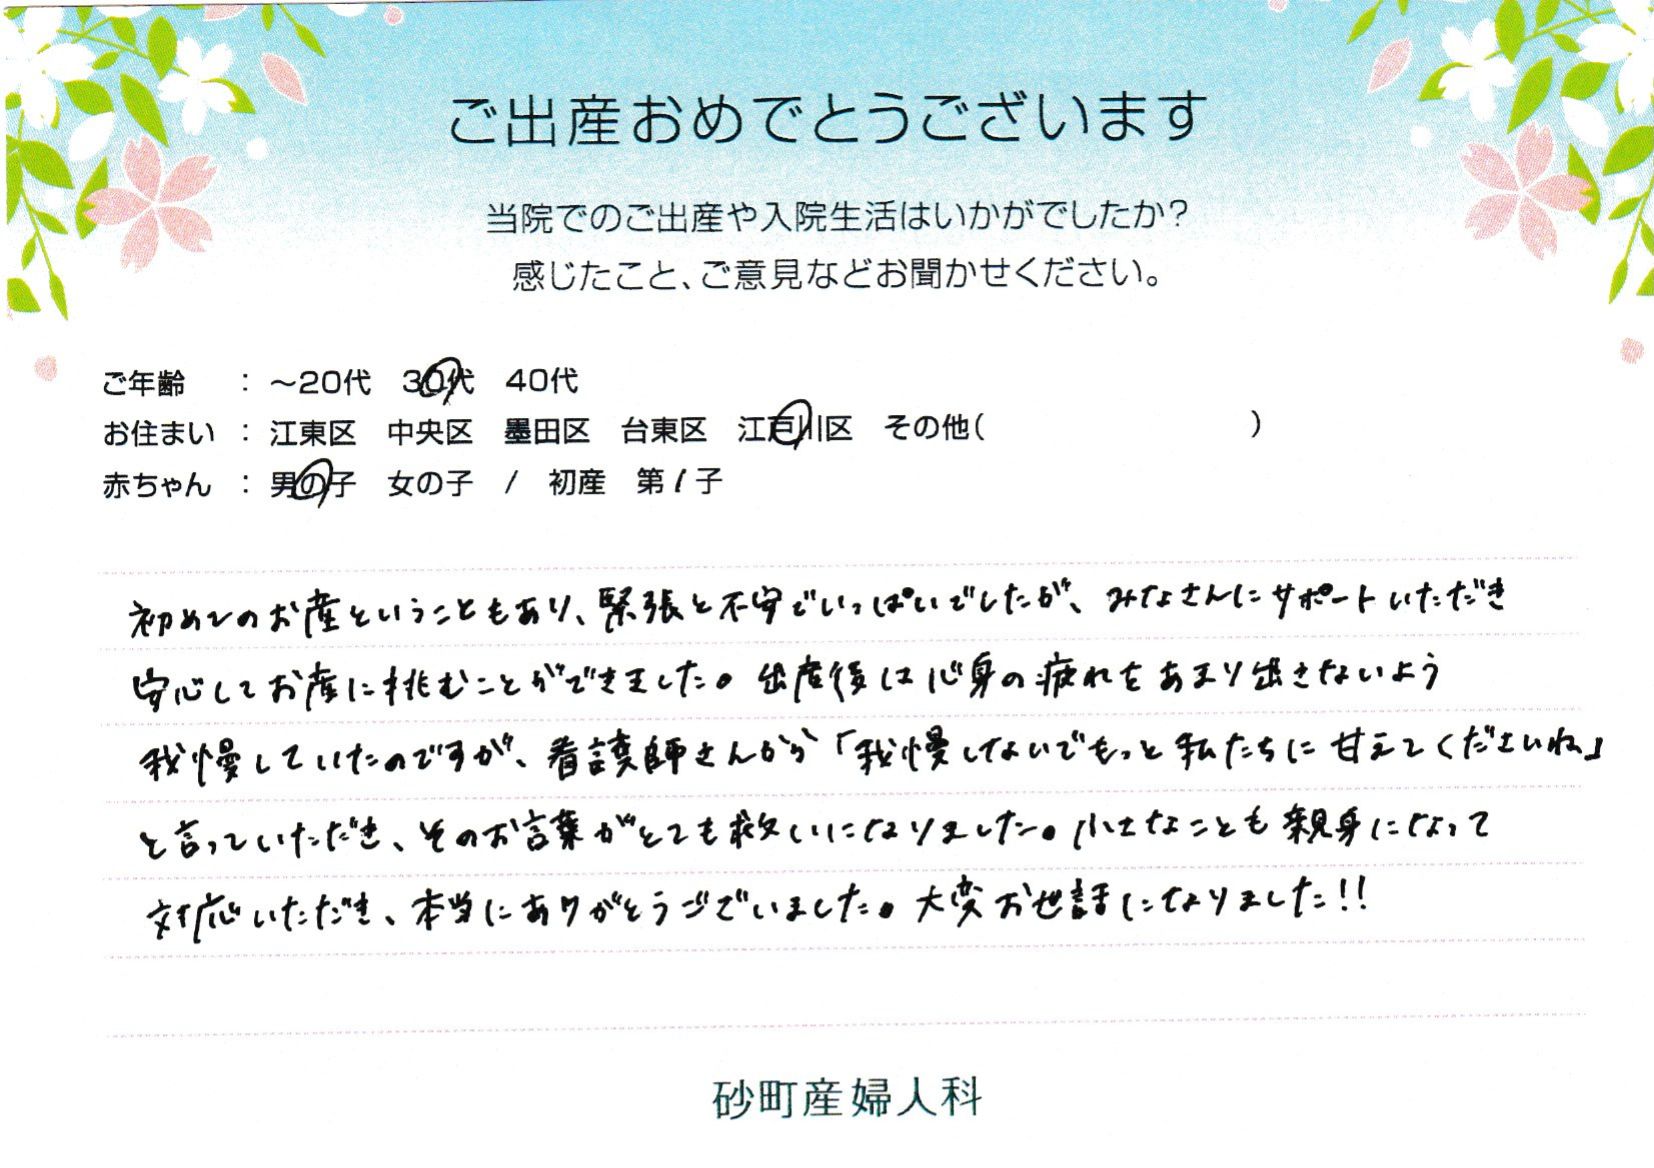 ご出産おめでとうございます
当院でのご出産や入院生活はいかがでしたか?
感じたこと、ご意見などお聞かせください。
ご年齢 : ～20代 30代 40代
お住まい : 江東区 中央区 墨田区 台東区 江戸川区 その他( )
赤ちゃん : 男の子 女の子 / 初産 第1子
初めてのお産ということもあり、緊張と不安でいっぱいでしたが、みなさんにサポートいただき
安心してお産に挑むことができました。出産後は心身の疲れをあまり出さないよう
我慢していたのですが、看護師さんから「我慢しないでもっと私たちに甘えてくださいね」
と言っていただき、そのお言葉がとても救いになりました。小さなことも親身になって
対応いただき、本当にありがとうございました。大変お世話になりました!!
砂町産婦人科